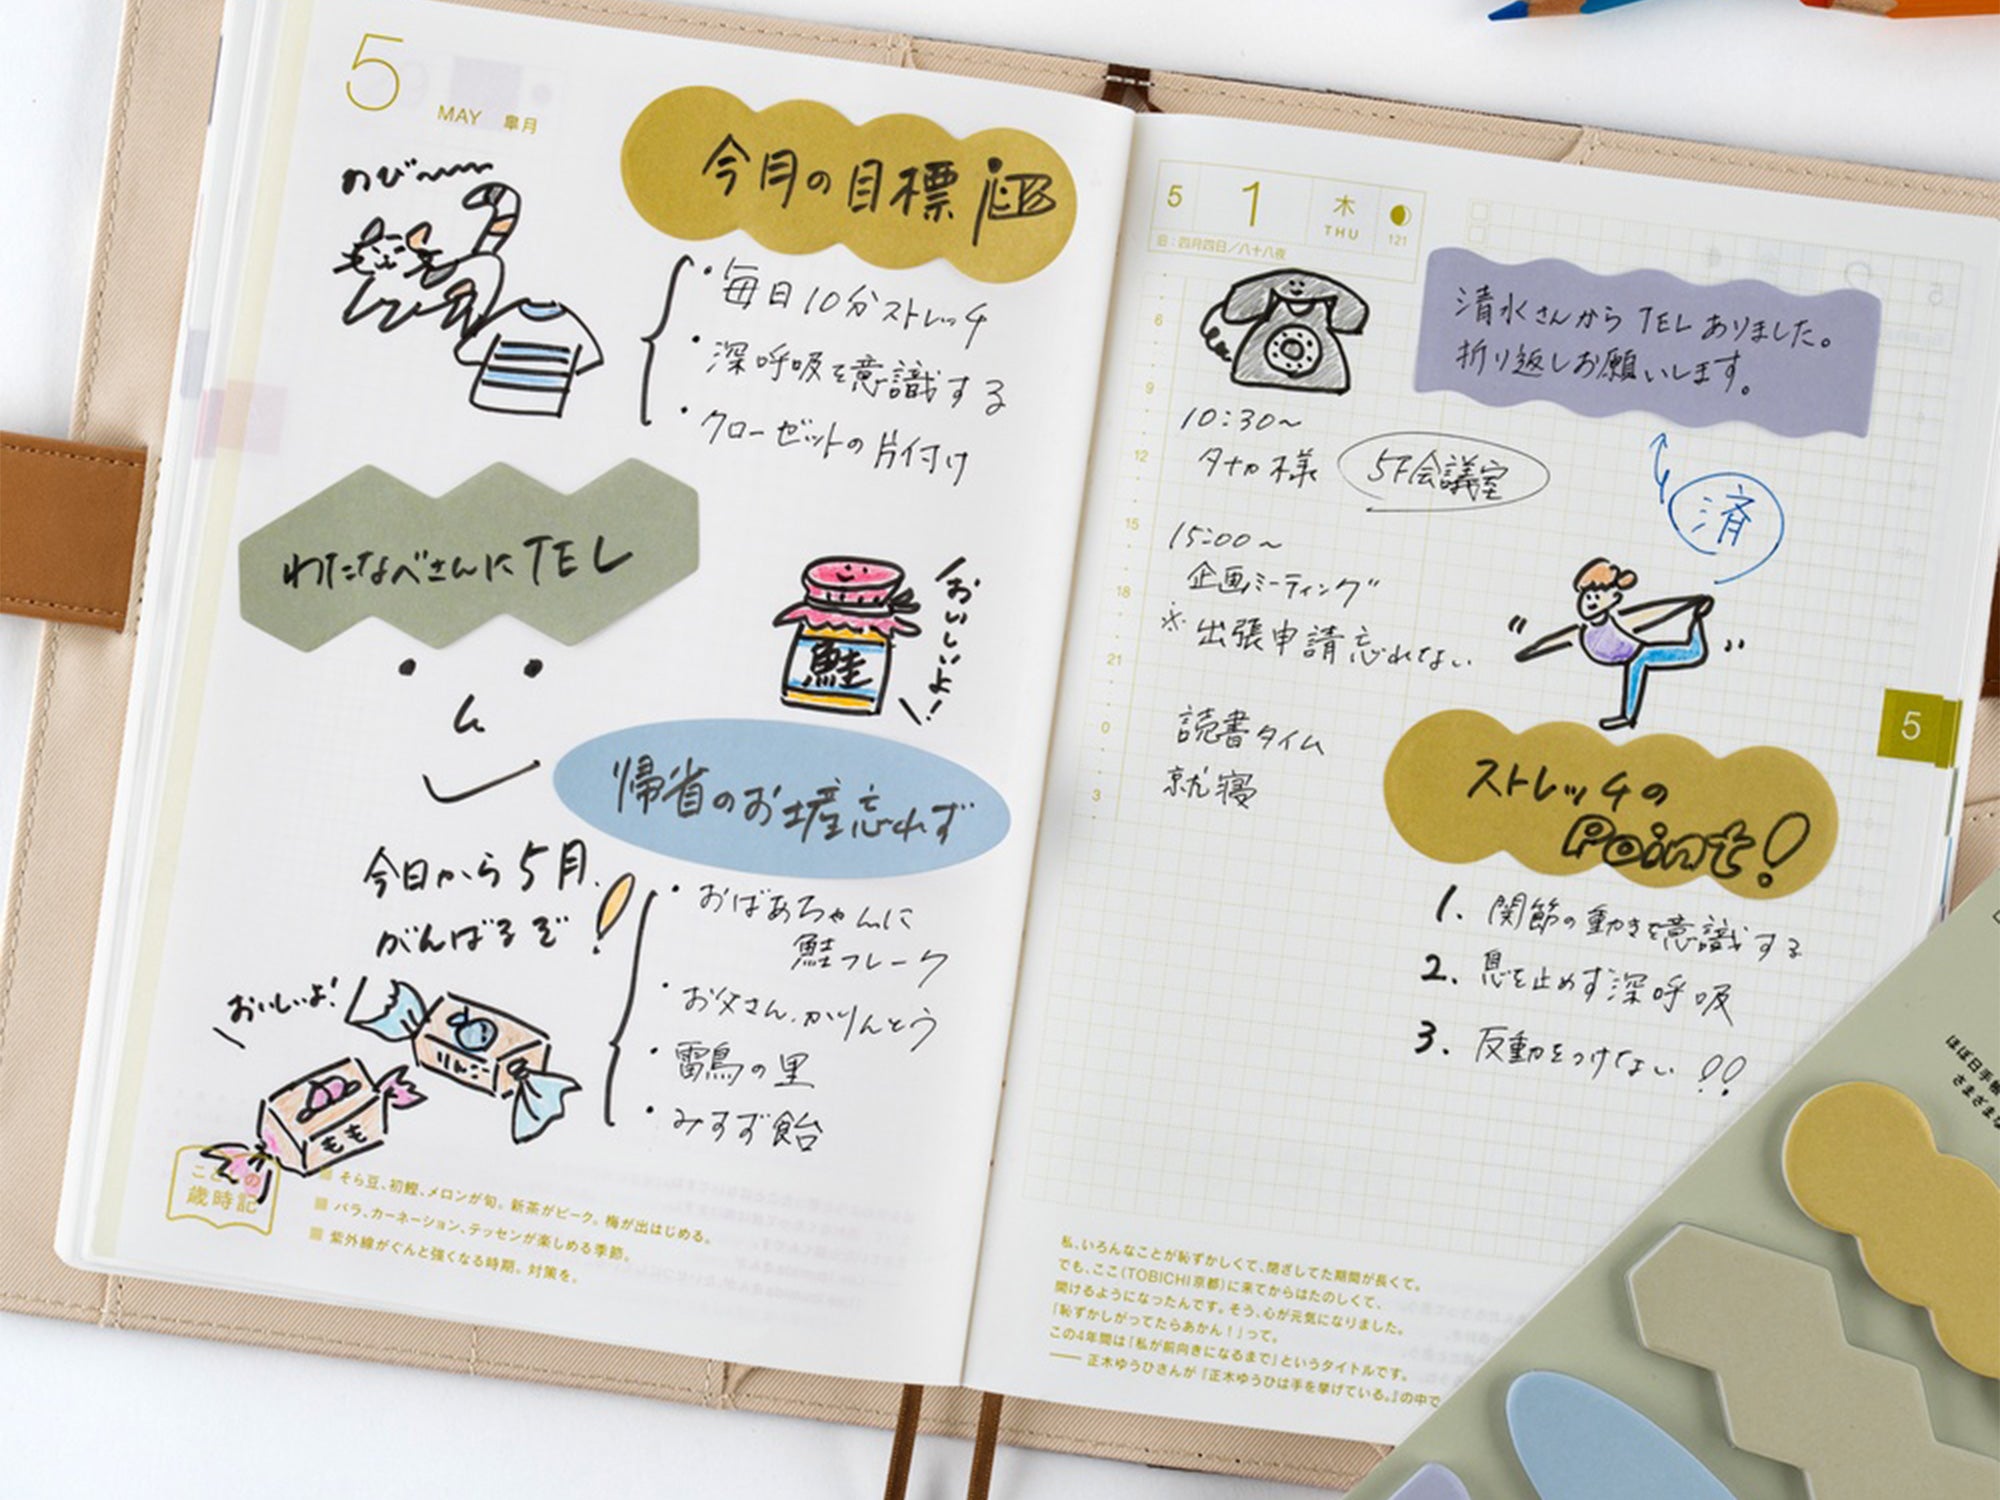 5
MAY 皐月
のび〜
今月の目標
・毎日10分ストレッチ
・深呼吸を意識する
・クローゼットの片付け
わたなべさんにTEL
鮭
おいしいよ!
帰省のお土産忘れず
今日から5月、
がんばるぞ!
・おばあちゃんに
鮭フレーク
・お父さん、かりんとう
・雷鳥の里
・みすず飴
おいしいよ!
りんご
もも
歳時記
そら豆、初鰹、メロンが旬。新茶がピーク。梅が出はじめる。
バラ、カーネーション、テッセンが楽しめる季節。
紫外線がぐんと強くなる時期。対策を。
5 1 木 THU 121
旧:四月四日/八十八夜
清水さんからTELありました。
折り返しお願いします。
済
6
9
12
15
18
21
0
3
10:30〜
タナカ様 5F会議室
15:00〜
企画ミーティング
※出張申請忘れない
読書タイム
就寝
ストレッチの
Point!
1. 関節の動きを意識する
2. 息を止めず深呼吸
3. 反動をつけない!!
5
私、いろんなことが恥ずかしくて、閉ざしてた期間が長くて。
でも、ここ(TOBICHI京都)に来てからはたのしくて、
開けるようになったんです。そう、心が元気になりました。
「恥ずかしがってたらあかん!」って。
この4年間は「私が前向きになるまで」というタイトルです。
── 正木ゆうひさんが『正木ゆうひは手を挙げている。』の中で
ほぼ日手帳
さまざまな